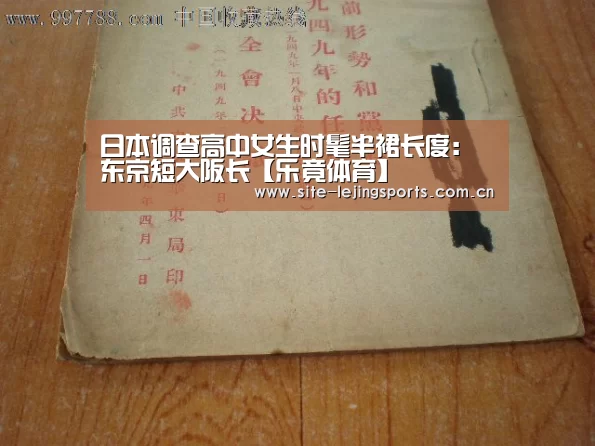 www.997788.com 中国收藏热线
前形勢和黨
九四九年的任
九四九年一月八日中央
全會决
(一九四九年
日)
中共
東局印
年四月一日
日本调查高中女生时髦半裙长度：
东京短大阪长【乐竟体育】
www.site-lejingsports.com.cn